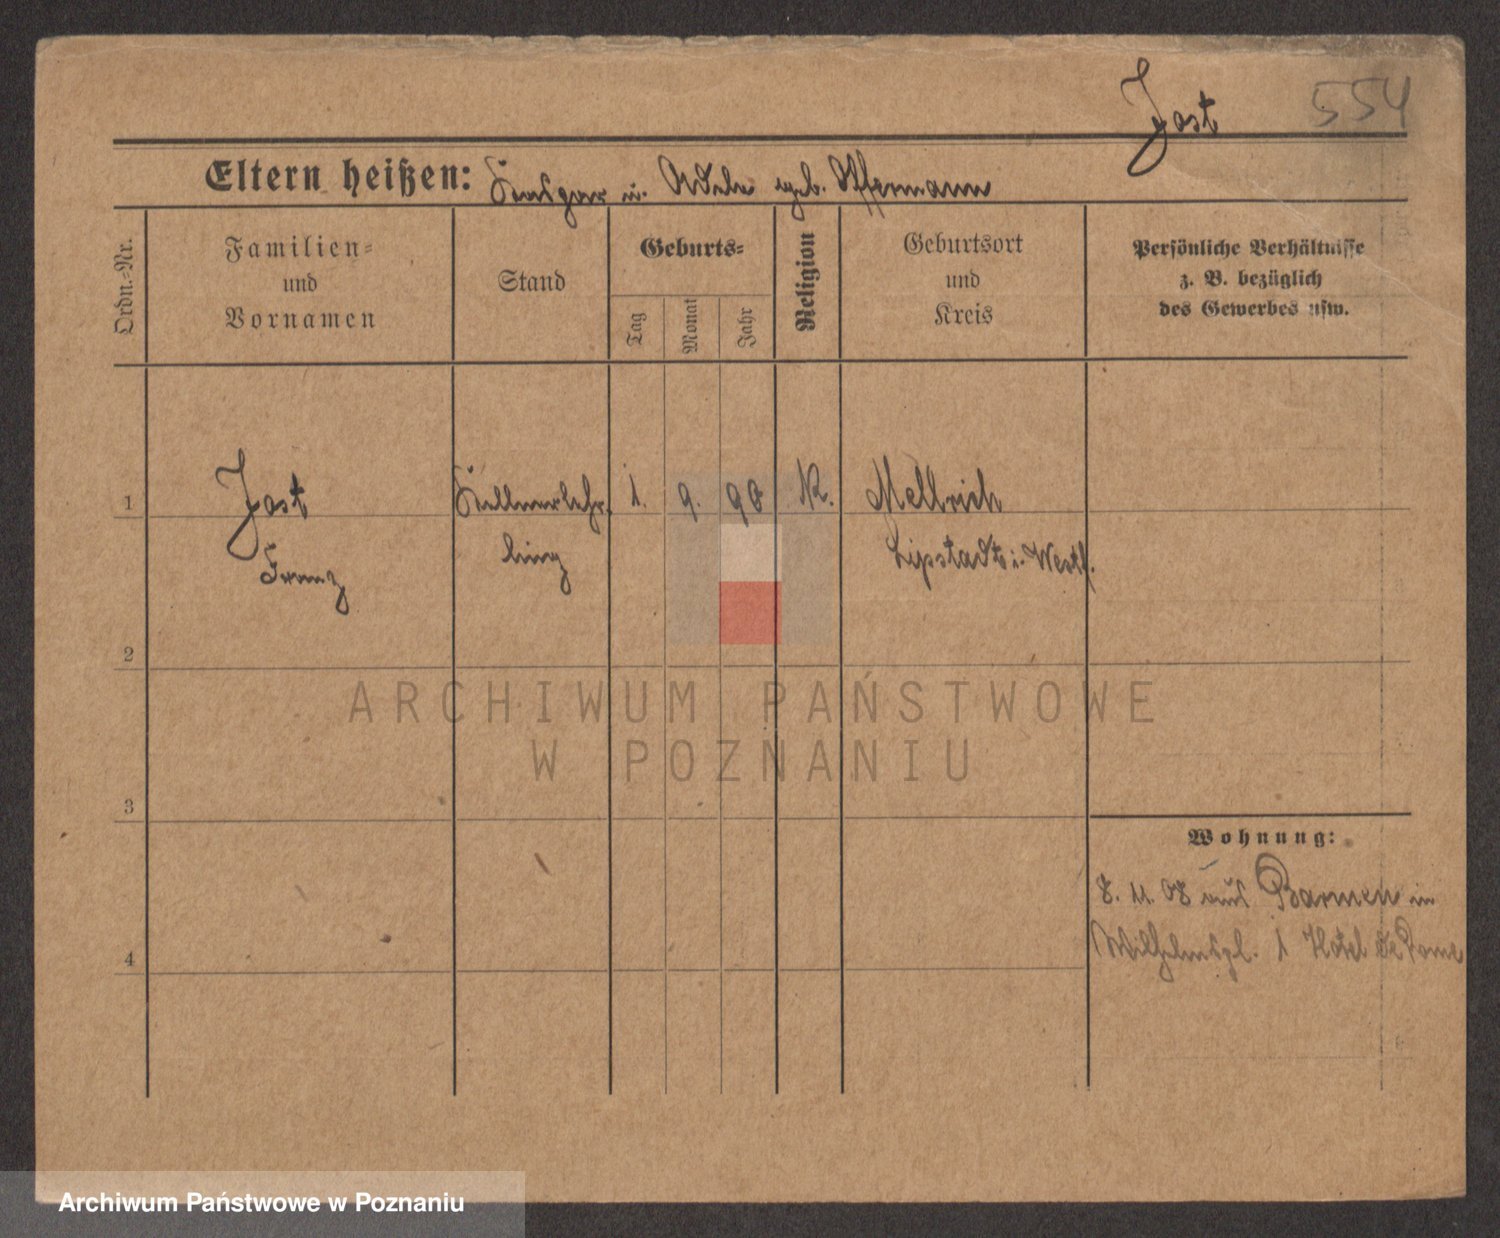 Jost 554
Eltern heißen: Kaspar u. Adele geb.
Ordn.-Nr.
Familien-
und
Vornamen
Stand
Geburts-
Tag
Monat
Jahr
Religion
Geburtsort
und
Kreis
Persönliche Verhältnisse
z. B. bezüglich
des Gewerbes usw.
1 Jost Kellnerlehr- 1. 9. 90 K. Mellrich
Franz ling Lippstadt i. Westf.
2
ARCHIWUM PAŃSTWOWE
W POZNANIU
3
Wohnung:
8. 11. 08 aus Barmen in
Wilhelmspl. 1 Hotel de Rome
4
Archiwum Państwowe w Poznaniu